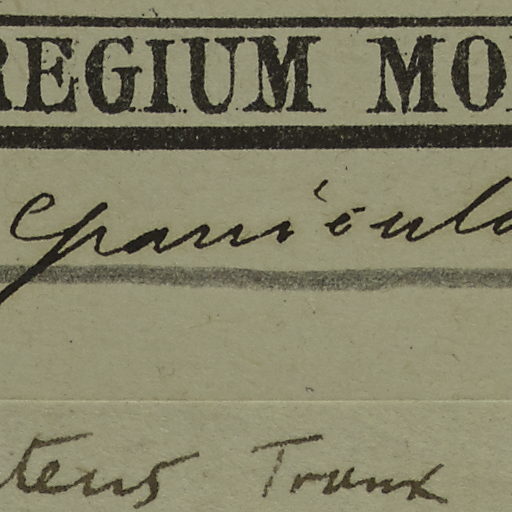 REGIUM MO
panicula
tens Trunk